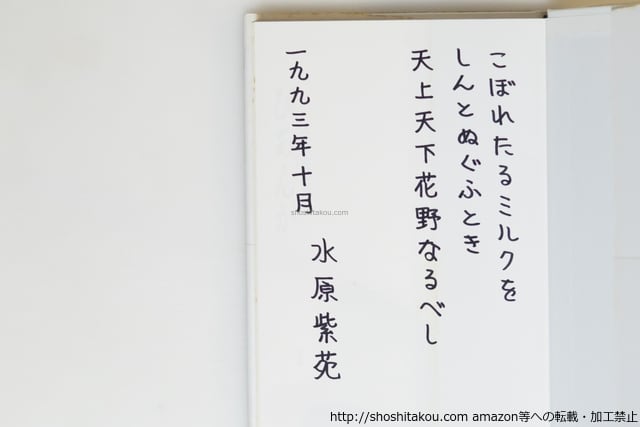 こぼれたるミルクを
しんとぬぐふとき
天上天下花野なるべし
一九九三年十月
水原紫苑
shoshitakou.com
http://shoshitakou.com amazon等への転載・加工禁止